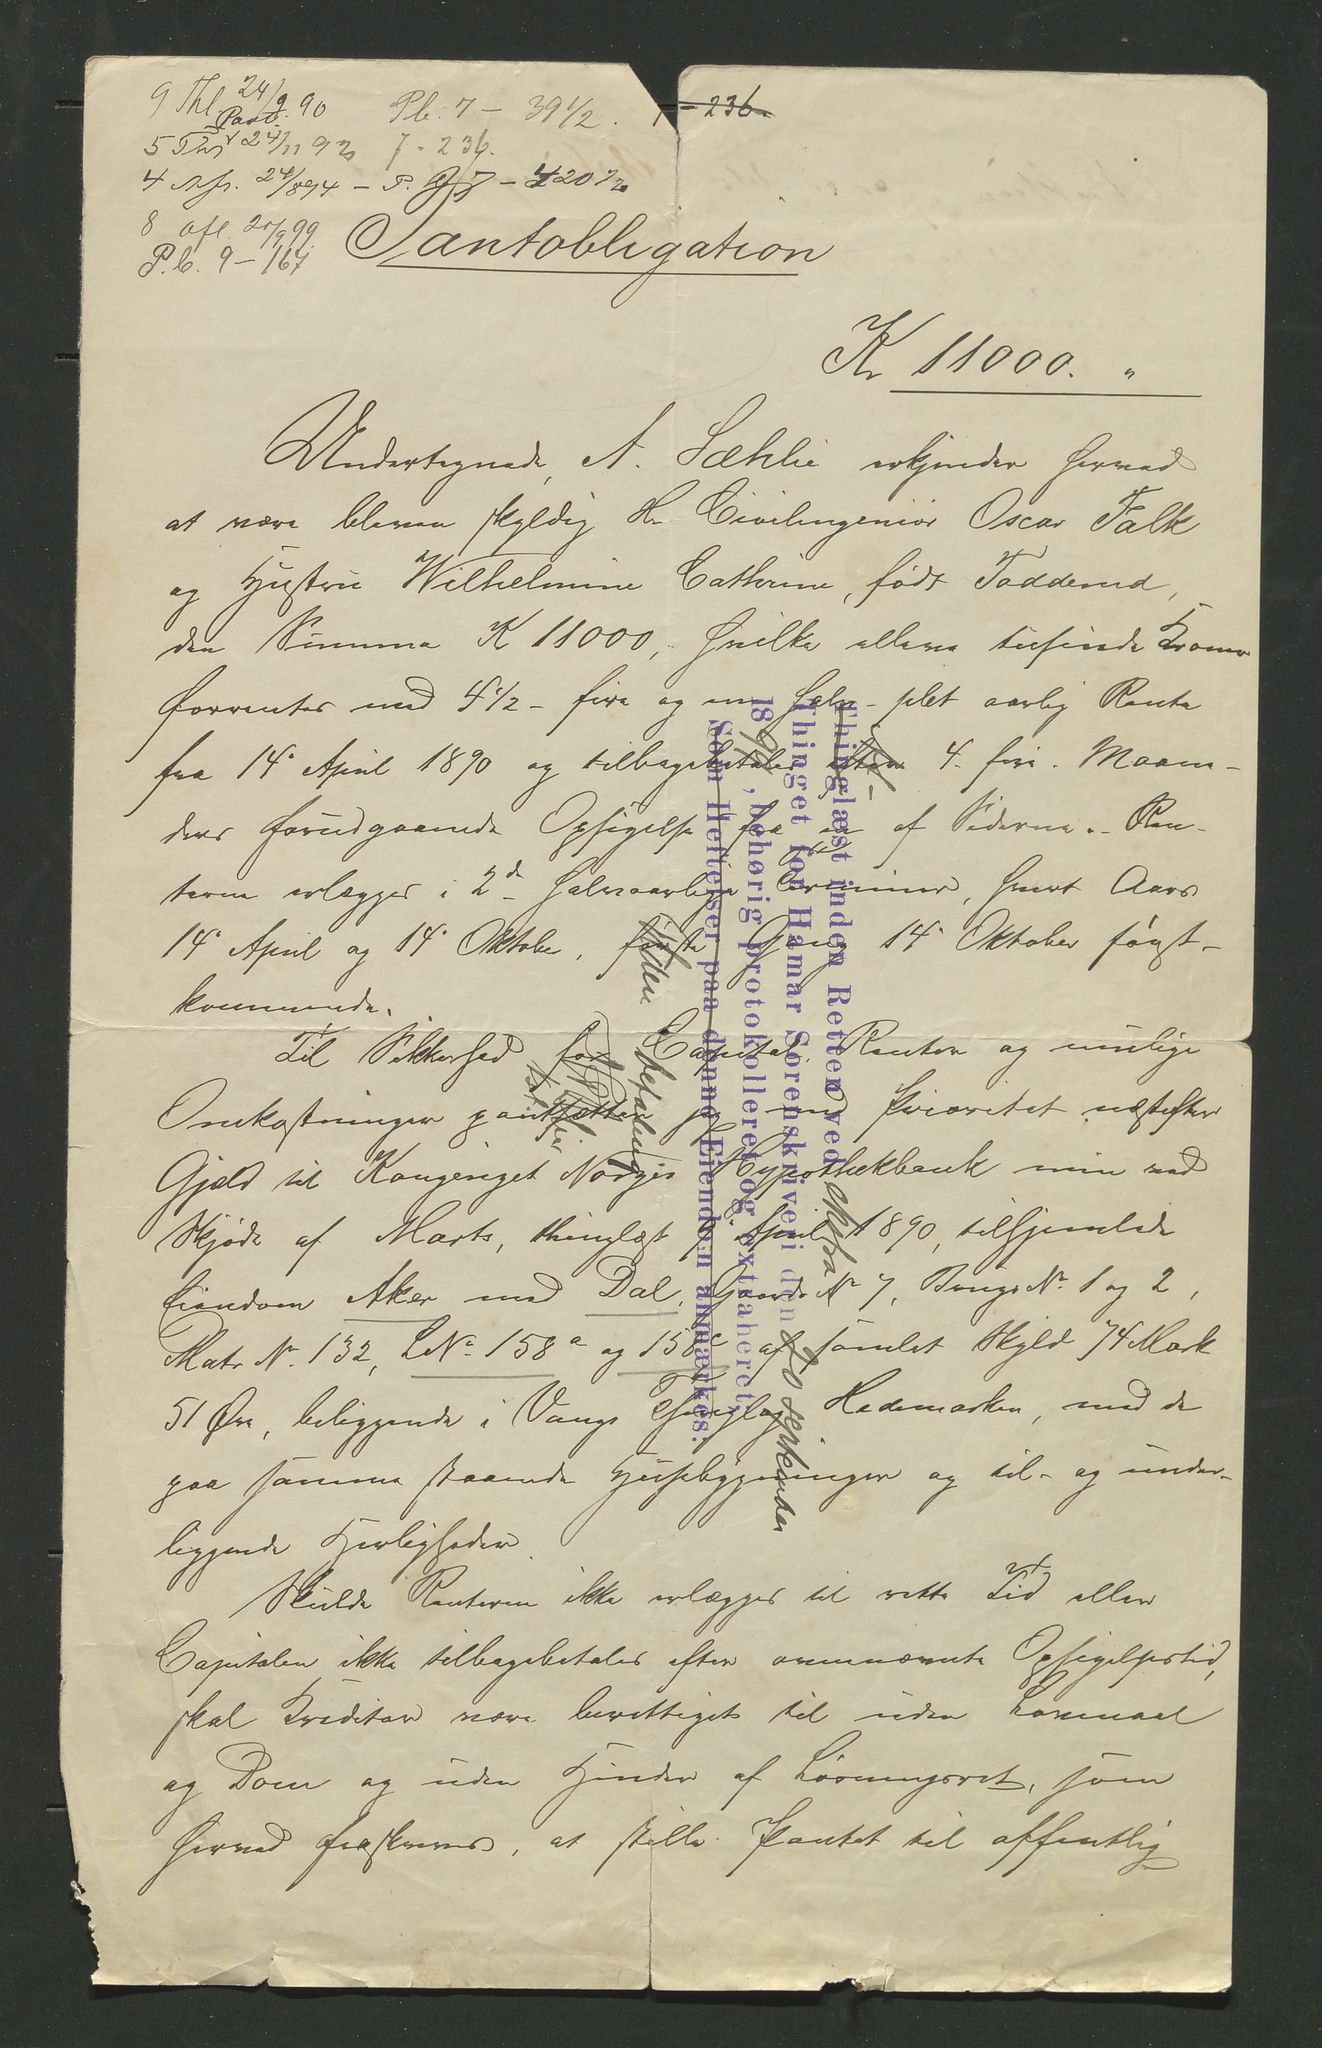 9 Thl. 24/9 90 Pb. 7 - 39 1/2. 1 - 236.
Pant.
5 Ths 24/11 92 7 - 236.
4 24/8 94 - P. - 420
8 Afl. 99.
P.b. 9 - 167.
Pantobligation
Kr 11000. "
Undertegnede, A. Sæhlie erkjender herved
at være bleven skyldig Hr Civilingeniør Oscar Falk
og Hustru Wilhelmine Cathrine, født Todderud,
den Summa K 11000, hvilke elleve tusinde Kroner
forrentes med 4 1/2 - fire og en halv - pCt aarlig Rente
fra 14de April 1890 og tilbagebetales efter 4 - fire - Maane-
ders forudgaaende Opsigelse fra en af Siderne. - Ren-
terne erlægges i 2de halvaarlige Terminer, hvert Aars
14de April og 14de Oktober, første Gang 14de Oktober først-
kommende.
Til Sikkerhed for Capital, Renter og mulige
Omkostninger pantsætter jeg med Prioritet næstefter
Gjæld til Kongeriget Norges Hypothekbank min ved
Skjøde af Marts, thinglæst April 1890, tilhjemlede
Eiendom Aker med Dal, Gaards No 7, Brugs No 1 og 2,
Matr No. 132, LNo 158a og 158c af samlet Skyld 74 Mark
51 Øre, beliggende i Vangs Thinglag Hedemarken, med de
paa samme staaende Husebygninger og til- og under-
liggende Herligheder.
Skulde Renterne ikke erlægges til rette Tid eller
Capitalen ikke tilbagebetales efter ovennævnte Opsigelsestid,
skal Kreditor være berettiget til uden Lovmaal
og Dom og uden Hinder af Løsningsret, som
herved fraskrives, at stille Pantet til offentlig
Thinglæst inden Retten ved Extra
Thinget for Hamar Sorenskriveri den 20 September
1899, behørig protokolleret og extraheret.
Som Heftelser paa denne Eiendom anmærkes: